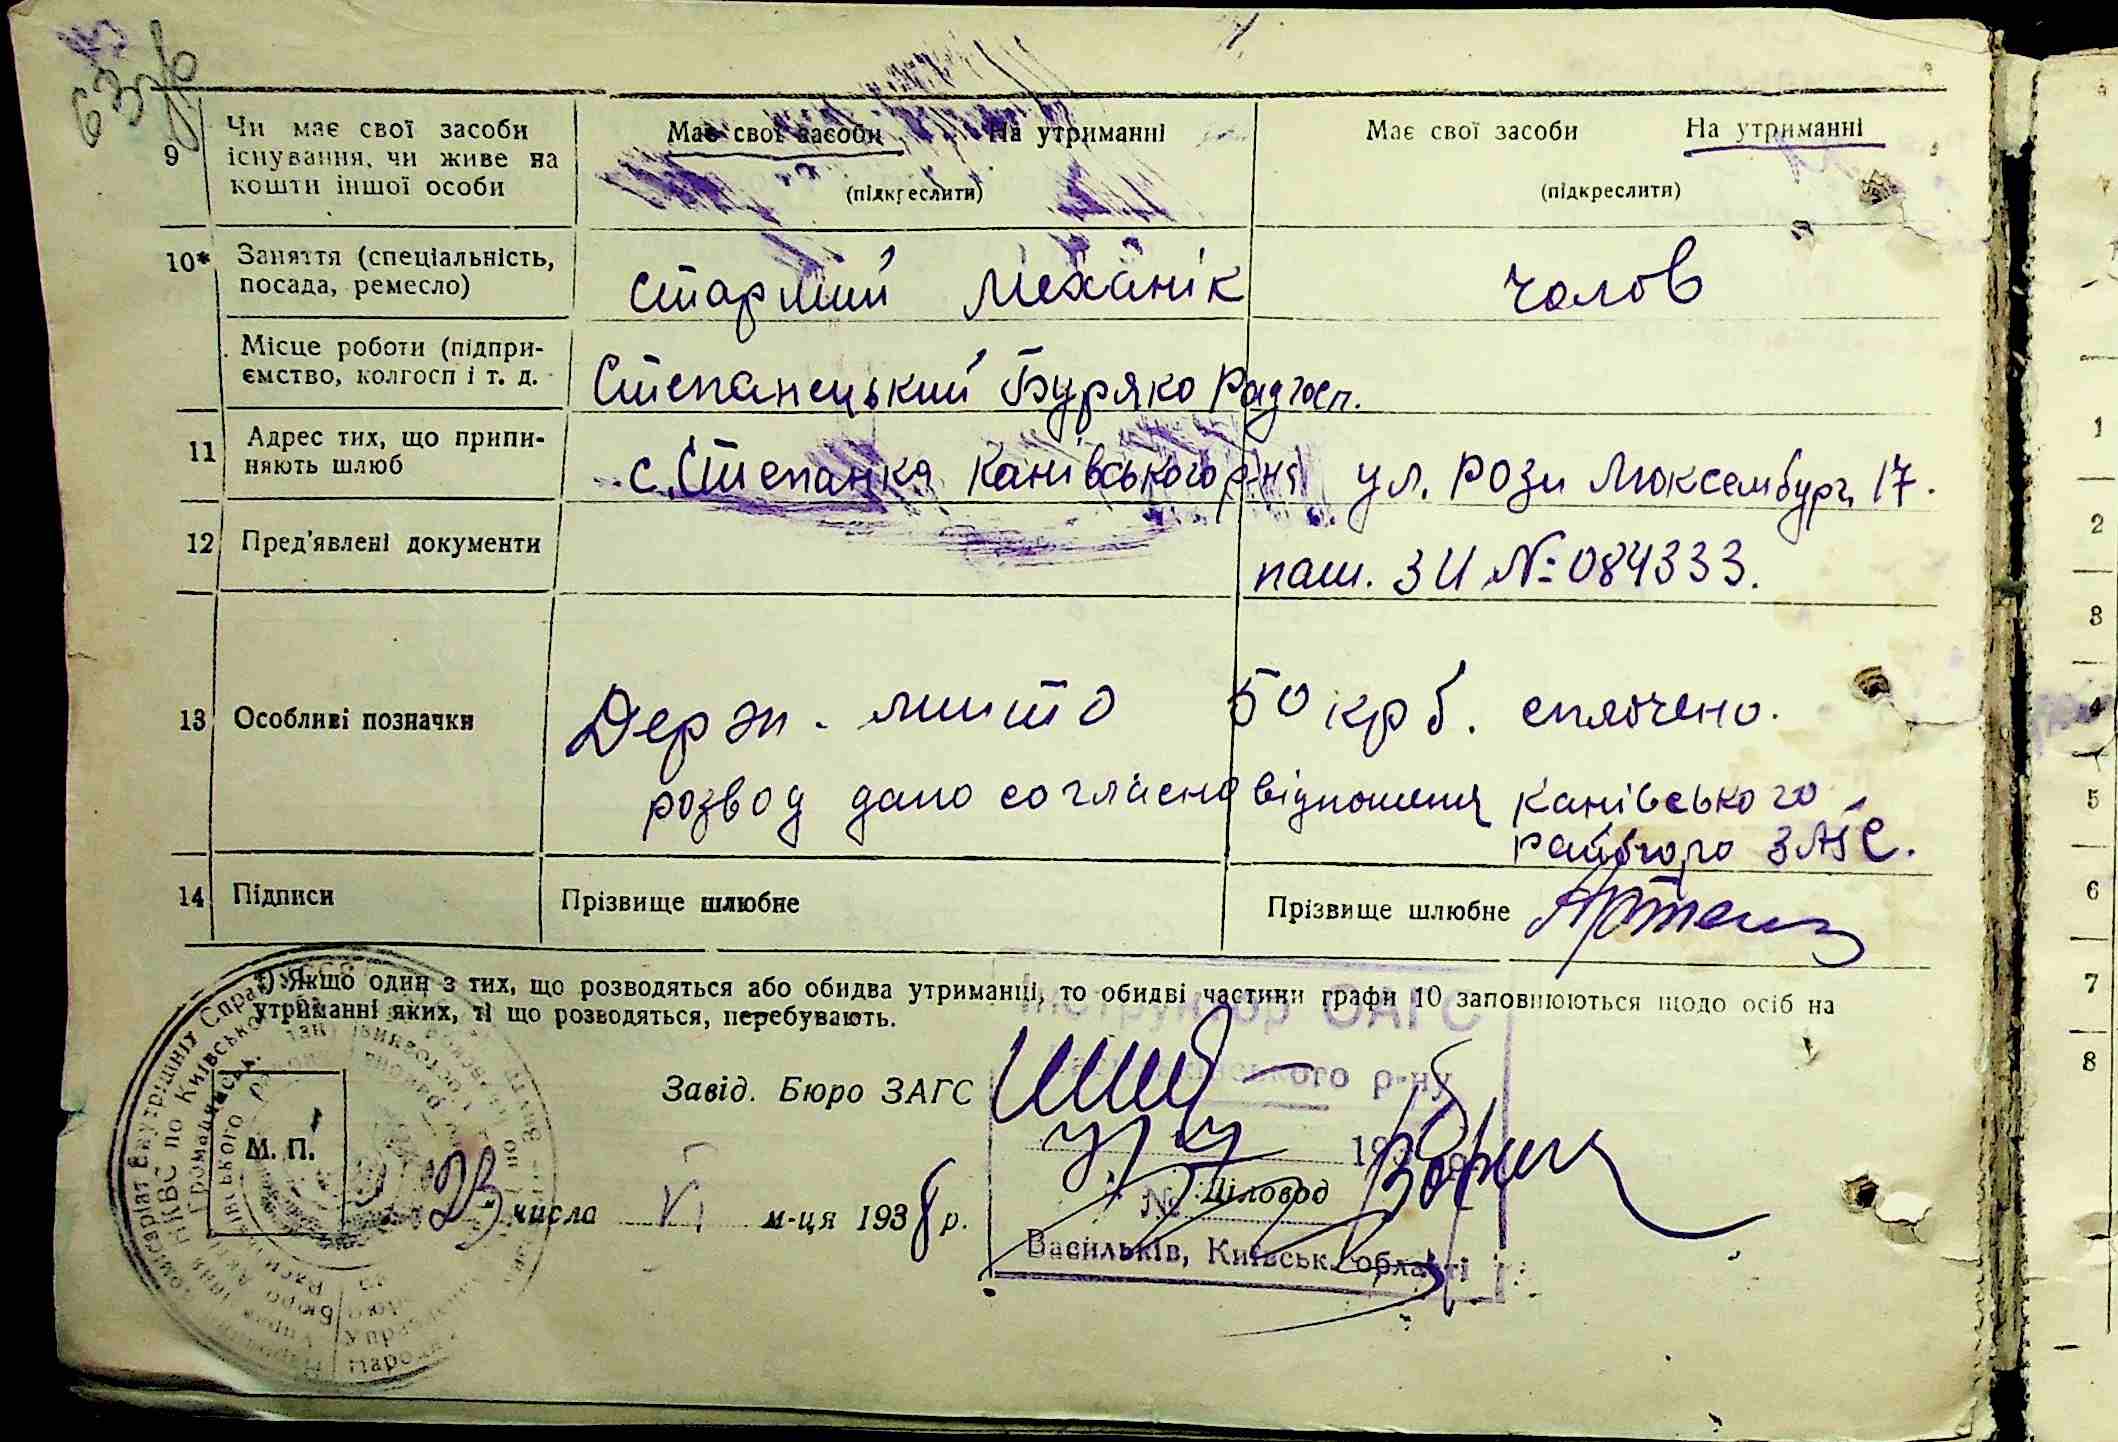 63 зв
9 Чи має свої засоби існування, чи живе на кошти іншої особи
Має свої засоби На утриманні
(підкреслити)
Має свої засоби На утриманні
(підкреслити)
10* Заняття (спеціальність, посада, ремесло)
Старший механік
чолов
Місце роботи (підпри-
ємство, колгосп і т. д.
Степанецький Буряко Радгосп.
11 Адрес тих, що припи-
няють шлюб
с. Степанка Канівського р-ну
ул. Рози Люксембург 17.
12 Пред'явлені документи
паш. ЗИ № 084333.
13 Особливі позначки
Держ. мито 50 крб. сплочено.
розвод дано согласно відношення Канівського
райбюро ЗАГС.
14 Підписи
Прізвище шлюбне
Прізвище шлюбне
*) Якщо один з тих, що розводяться або обидва утриманці, то обидві частини графи 10 заповнюються щодо осіб на
утриманні яких, ті що розводяться, перебувають.
Інструктор ОАГС
р-ну
Завід. Бюро ЗАГС
М. П.
23 числа VI м-ця 1938 р.
Діловод
№
Васильків, Київськ. області
1
2
3
4
5
6
7
8